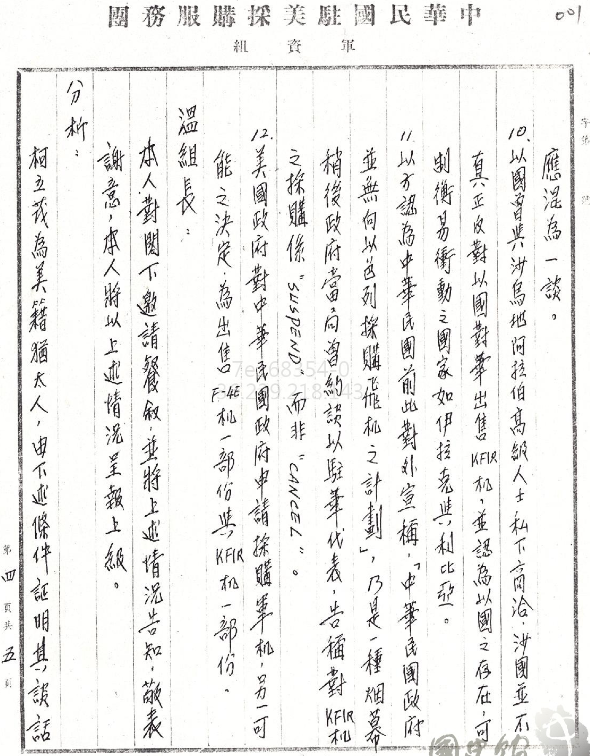 中華民國駐美採購服務團
軍資組
001
應混為一談。
10.以國曾與沙烏地阿拉伯高級人士私下商洽,沙國並不
真正反對以國對華出售KFIR机,並認為以國之存在,可
制衡易衝動之國家如伊拉克與利比亞。
11.以方認為中華民國前此對外宣稱,「中華民國政府
並無向以色列採購飛机之計劃」,乃是一種烟幕
稍後政府當局曾約談以駐華代表,告稱對KFIR机
之採購係"SUSPEND 而非"CANCEL"。
12.美國政府對中華民國政府申請採購軍机,另一可
能之決定,為出售F-4E机一部份與KFIR机一部份。
溫組長:
本人對閣下邀請餐敘,並將上述情況告知,敬表
謝意,本人將以上述情況呈報上級。
分析:
柯立茂為美籍猶太人,由下述條件証明其談話
第四頁共五頁
國史館